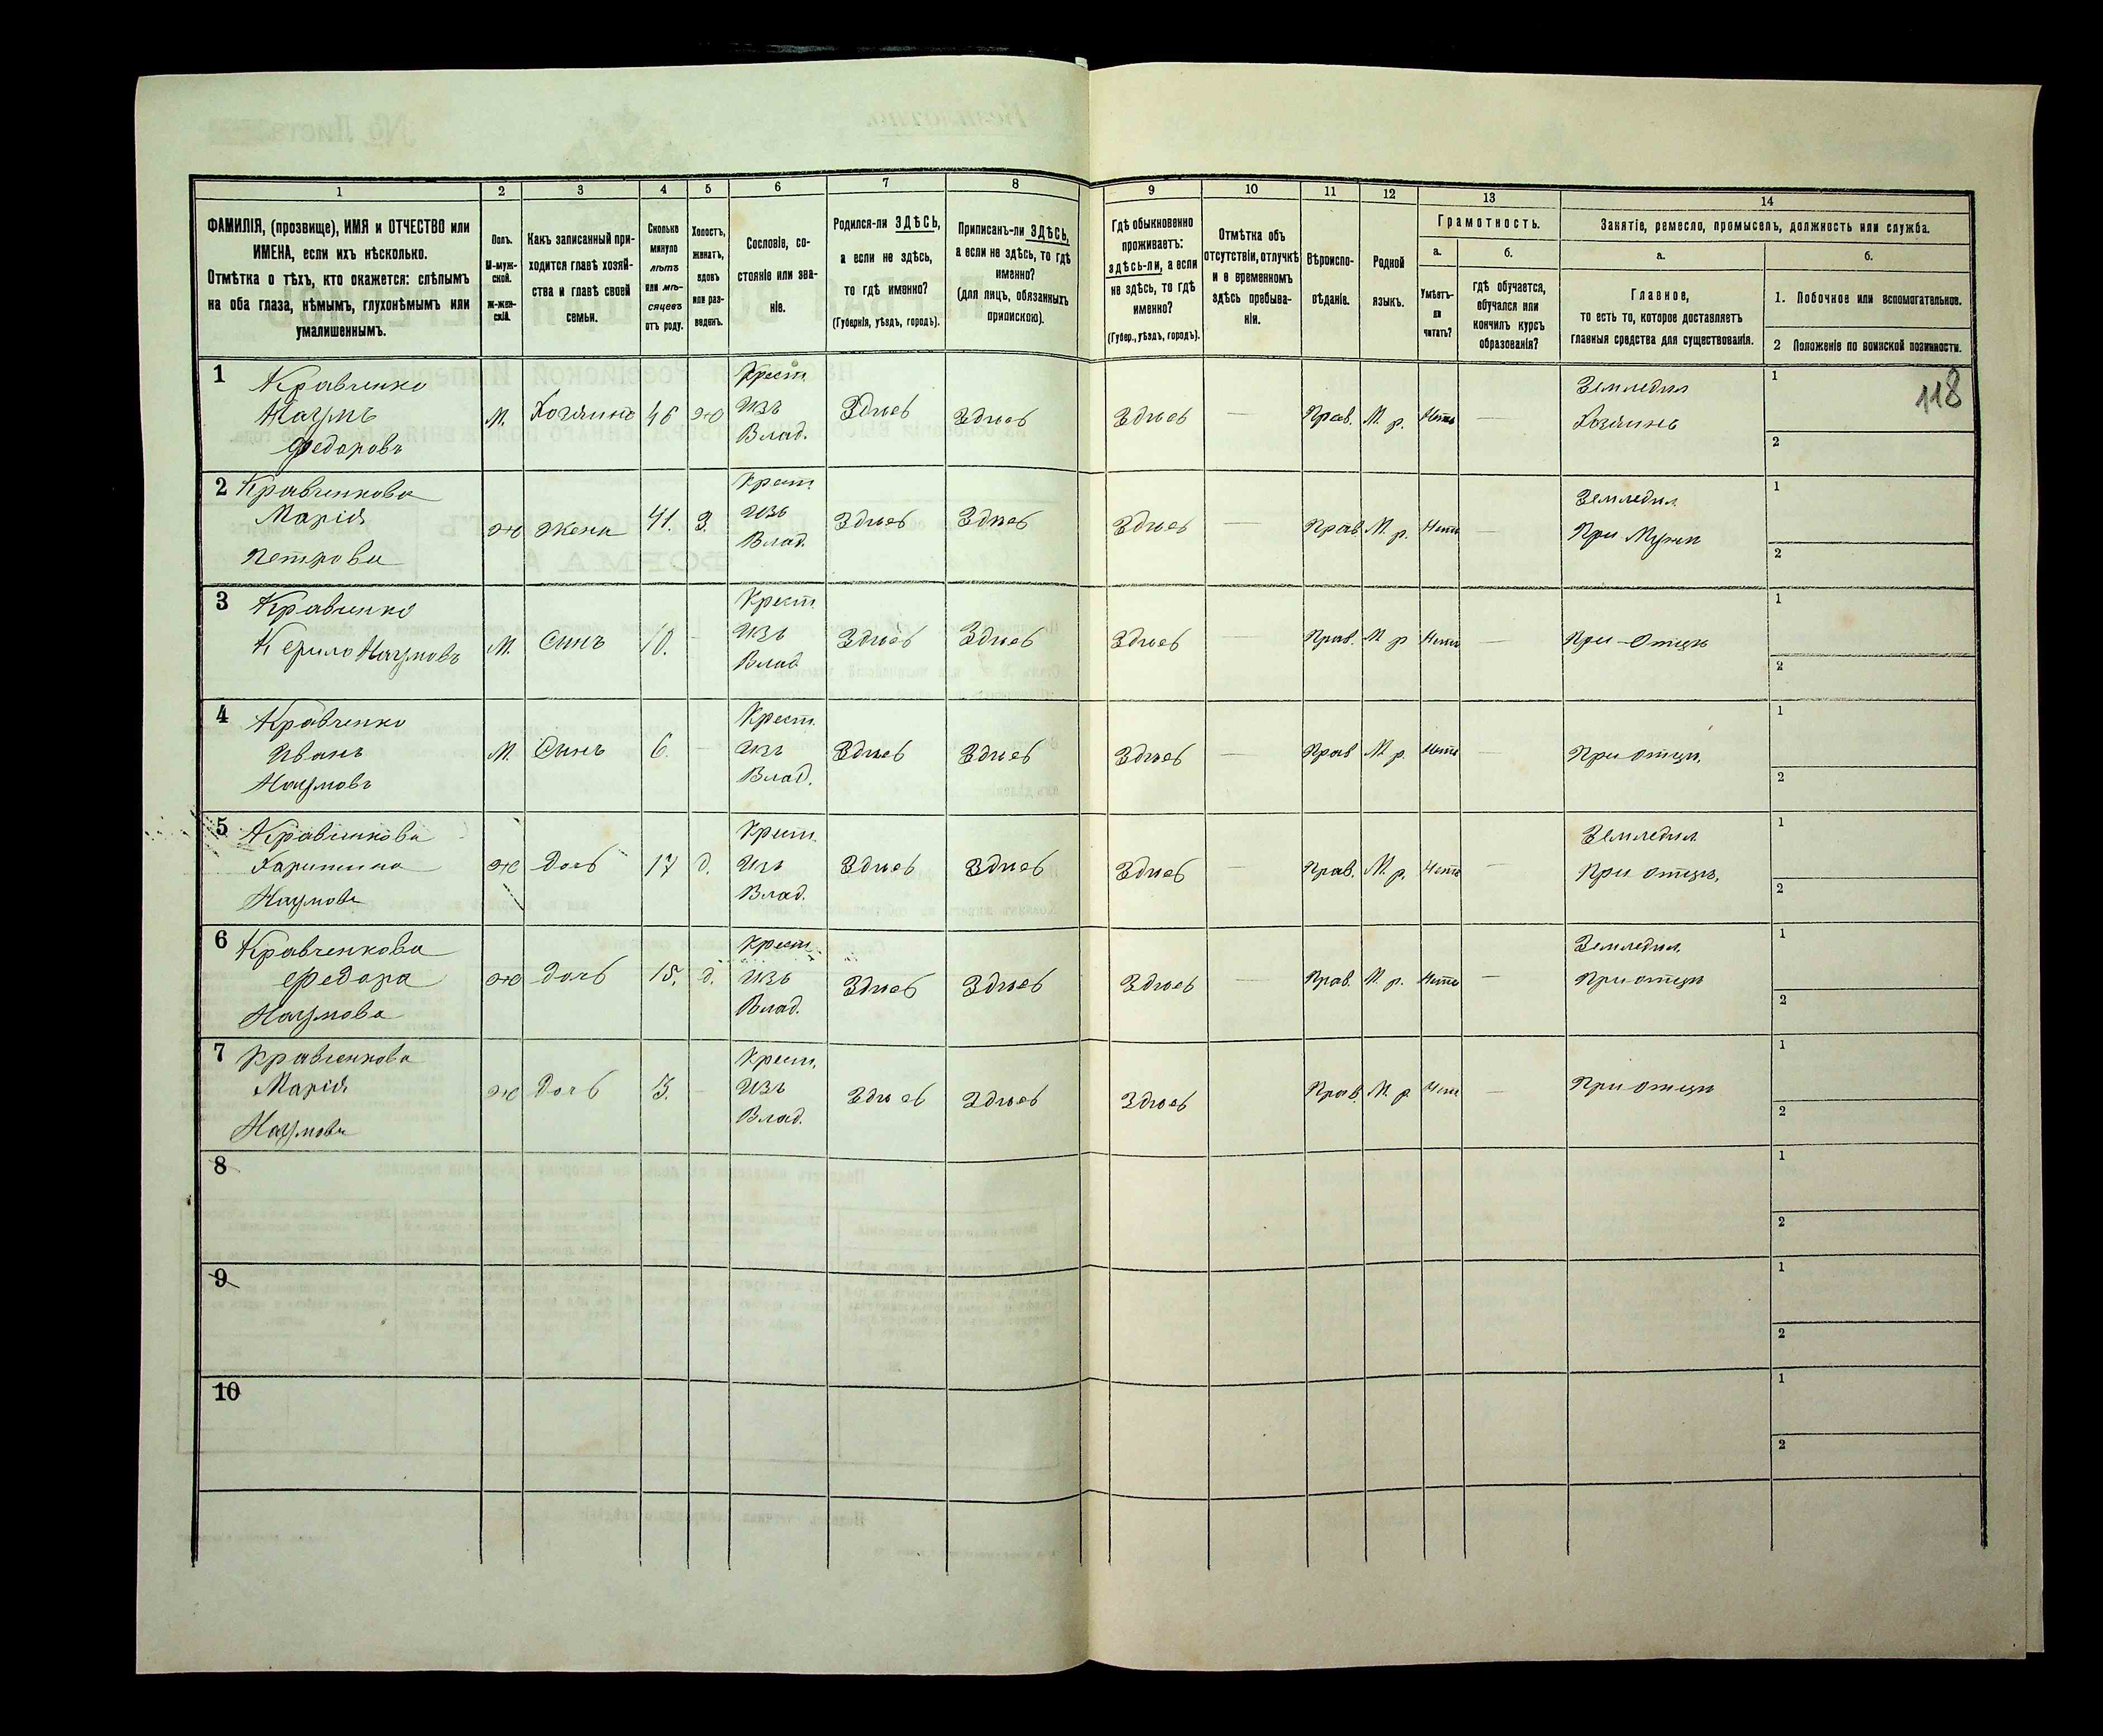 1 2 3 4 5 6 7 8 9 10 11 12 13 14
ФАМИЛІЯ, (прозвище), ИМЯ и ОТЧЕСТВО или
ИМЕНА, если ихъ нѣсколько.
Отмѣтка о тѣхъ, кто окажется: слѣпымъ
на оба глаза, нѣмымъ, глухонѣмымъ или
умалишеннымъ.
Полъ.
М-муж-
ской.
Ж-жен-
скій.
Какъ записанный при-
ходится главѣ хозяй-
ства и главѣ своей
семьи.
Сколько
минуло
лѣтъ
или мѣ-
сяцевъ
отъ роду.
Холостъ,
женатъ,
вдовъ
или раз-
веденъ.
Сословіе, со-
стояніе или зва-
ніе.
Родился-ли ЗДѢСЬ,
а если не здѣсь,
то гдѣ именно?
(Губернія, уѣздъ, городъ).
Приписанъ-ли ЗДѢСЬ,
а если не здѣсь, то гдѣ
именно?
(для лицъ, обязанныхъ
припискою).
Гдѣ обыкновенно
проживаетъ:
здѣсь-ли, а если
не здѣсь, то гдѣ
именно?
(Губер., уѣздъ, городъ).
Отмѣтка объ
отсутствіи, отлучкѣ
и о временномъ
здѣсь пребыва-
ніи.
Вѣроиспо-
вѣданіе.
Родной
языкъ.
Грамотность.
а.
Умѣетъ-
ли
читать?
б.
гдѣ обучается,
обучался или
кончилъ курсъ
образованія?
Занятіе, ремесло, промыселъ, должность или служба.
а.
Главное,
то есть то, которое доставляетъ
главныя средства для существованія.
б.
1. Побочное или вспомогательное.
2 Положеніе по воинской повинности.
118
1 Кравченко
Наумъ
Федоровъ
М. Хозяинъ 45 Ж
Крест.
изъ
Влад.
Здѣсь Здѣсь Здѣсь — Прав. М. р. Нѣтъ —
Земледѣл.
Хозяинъ
1
2
2 Кравченкова
Марія
Петрова
Ж Жена 41. З.
Крест.
изъ
Влад.
Здѣсь Здѣсь Здѣсь — Прав. М. р. Нѣтъ —
Земледѣл.
При Мужѣ
1
2
3 Кравченко
Кирило Наумовъ
М. Синъ 10. —
Крест.
изъ
Влад.
Здѣсь Здѣсь Здѣсь — Прав. М. р. Нѣтъ —
При Отцѣ
1
2
4 Кравченко
Иванъ
Наумовъ
М. Синъ 6. —
Крест.
изъ
Влад.
Здѣсь Здѣсь Здѣсь — Прав. М. р. Нѣтъ —
При отцѣ.
1
2
5 Кравченкова
Харитина
Наумова
Ж Дочь 17 д.
Крест.
изъ
Влад.
Здѣсь Здѣсь Здѣсь — Прав. М. р. Нѣтъ —
Земледѣл.
При отцѣ.
1
2
6 Кравченкова
Федора
Наумова
Ж Дочь 15. д.
Крест.
изъ
Влад.
Здѣсь Здѣсь Здѣсь — Прав. М. р. Нѣтъ —
Земледѣл.
При отцѣ
1
2
7 Кравченкова
Марія
Наумова
Ж Дочь —
Крест.
изъ
Влад.
Здѣсь Здѣсь Здѣсь Прав. М. р. Нѣтъ —
При отцѣ
1
2
8
1
2
9
1
2
10
1
2